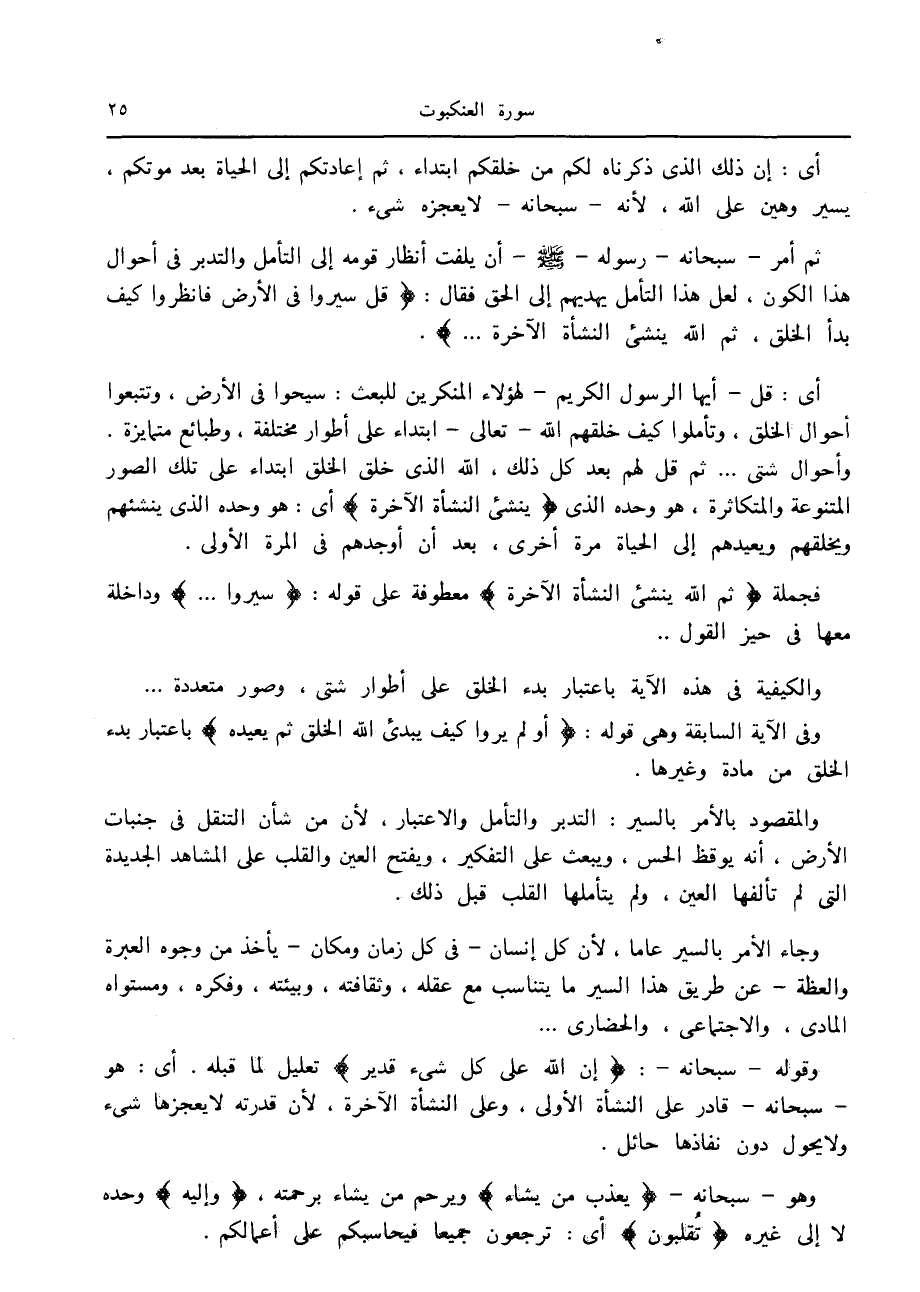 سورة العنكبوت ٢٥
أى : إن ذلك الذى ذكرناه لكم من خلقكم ابتداء ، ثم إعادتكم إلى الحياة بعد موتكم ،
يسير وهين على الله ، لأنه – سبحانه – لايعجزه شىء .
ثم أمر – سبحانه – رسوله – ﷺ – أن يلفت أنظار قومه إلى التأمل والتدبر فى أحوال
هذا الكون ، لعل هذا التأمل يهديهم إلى الحق فقال : ﴿ قل سيروا فى الأرض فانظروا كيف
بدأ الخلق ، ثم الله ينشئ النشأة الآخرة ... ﴾ .
أى : قل – أيها الرسول الكريم – لهؤلاء المنكرين للبعث : سيحوا فى الأرض ، وتتبعوا
أحوال الخلق ، وتأملوا كيف خلقهم الله – تعالى – ابتداء على أطوار مختلفة ، وطبائع متمايزة .
وأحوال شتى ... ثم قل لهم بعد كل ذلك ، الله الذى خلق الخلق ابتداء على تلك الصور
المتنوعة والمتكاثرة ، هو وحده الذى ﴿ ينشئ النشأة الآخرة ﴾ أى : هو وحده الذى ينشئهم
ويخلقهم ويعيدهم إلى الحياة مرة أخرى ، بعد أن أوجدهم فى المرة الأولى .
فجملة ﴿ ثم الله ينشئ النشأة الآخرة ﴾ معطوفة على قوله : ﴿ سيروا ... ﴾ وداخلة
معها فى حيز القول ..
والكيفية فى هذه الآية باعتبار بدء الخلق على أطوار شتى ، وصور متعددة ...
وفى الآية السابقة وهى قوله : ﴿ أو لم يروا كيف يبدئ الله الخلق ثم يعيده ﴾ باعتبار بدء
الخلق من مادة وغيرها .
والمقصود بالأمر بالسير : التدبر والتأمل والاعتبار ، لأن من شأن التنقل فى جنبات
الأرض ، أنه يوقظ الحس ، ويبعث على التفكير ، ويفتح العين والقلب على المشاهد الجديدة
التى لم تألفها العين ، ولم يتأملها القلب قبل ذلك .
وجاء الأمر بالسير عاما ، لأن كل إنسان – فى كل زمان ومكان – يأخذ من وجوه العبرة
والعظة – عن طريق هذا السير ما يتناسب مع عقله ، وثقافته ، وبيئته ، وفكره ، ومستواه
المادى ، والاجتماعى ، والحضارى ...
وقوله – سبحانه – : ﴿ إن الله على كل شىء قدير ﴾ تعليل لما قبله . أى : هو
– سبحانه – قادر على النشأة الأولى ، وعلى النشأة الآخرة ، لأن قدرته لايعجزها شىء
ولايحول دون نفاذها حائل .
وهو – سبحانه – ﴿ يعذب من يشاء ﴾ ويرحم من يشاء برحمته ، ﴿ وإليه ﴾ وحده
لا إلى غيره ﴿ تُقلبون ﴾ أى : ترجعون جميعا فيحاسبكم على أعمالكم .